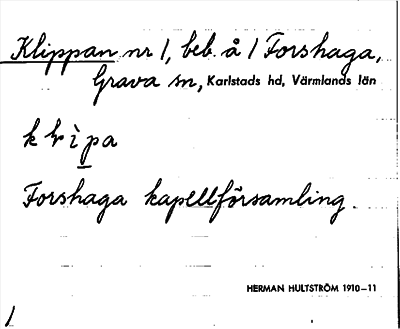 Klippan nr 1, beb. å 1 Forshaga,
Grava sn, Karlstads hd, Värmlands län
Forshaga kapellförsamling.
HERMAN HULTSTRÖM 1910-11